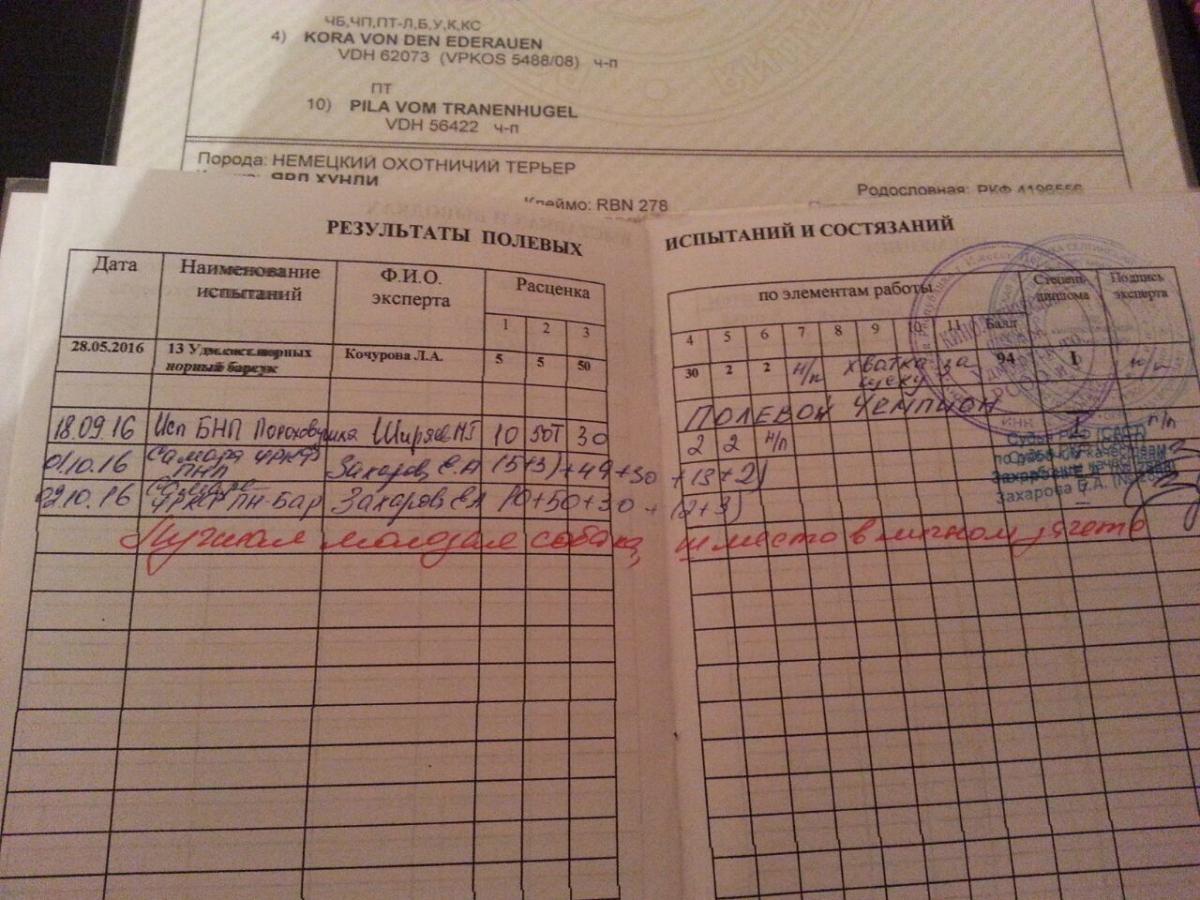 ЧБ,ЧП,ПТ-Л,Б,У,К,КС
4) KORA VON DEN EDERAUEN
VDH 62073 (VPKOS 5488/08) ч-п
ПТ
10) PILA VOM TRANENHUGEL
VDH 56422 ч-п
Порода: НЕМЕЦКИЙ ОХОТНИЧИЙ ТЕРЬЕР
ЯРД ХУНДИ
Клеймо: RBN 278
Родословная: РКФ 4196556
РЕЗУЛЬТАТЫ ПОЛЕВЫХ ИСПЫТАНИЙ И СОСТЯЗАНИЙ
Дата Наименование испытаний Ф.И.О. эксперта Расценка по элементам работы Степень диплома Подпись эксперта
1 2 3 4 5 6 7 8 9 10 11 Балл
28.05.2016 13 Удм.сост.норных норный барсук Кочурова Л.А. 5 5 50 30 2 2 н/п хватка за щеку 94 I н/п
ПОЛЕВОЙ ЧЕМПИОН
18.09.16 Исп БНП Пороховушка 10 50Т 30 2 2 н/п I п/п
01.10.16 Самара ЧРКФ ПНЛ Захаров Е.А (5+3)+49+30 +(3+2)
02.10.16 ЧРКФ ПН-Бар Захаров Е.А 10+50+30 + (2+3)
Захарова Е.А.
Лучшая молодая собака, III место в личном зачете